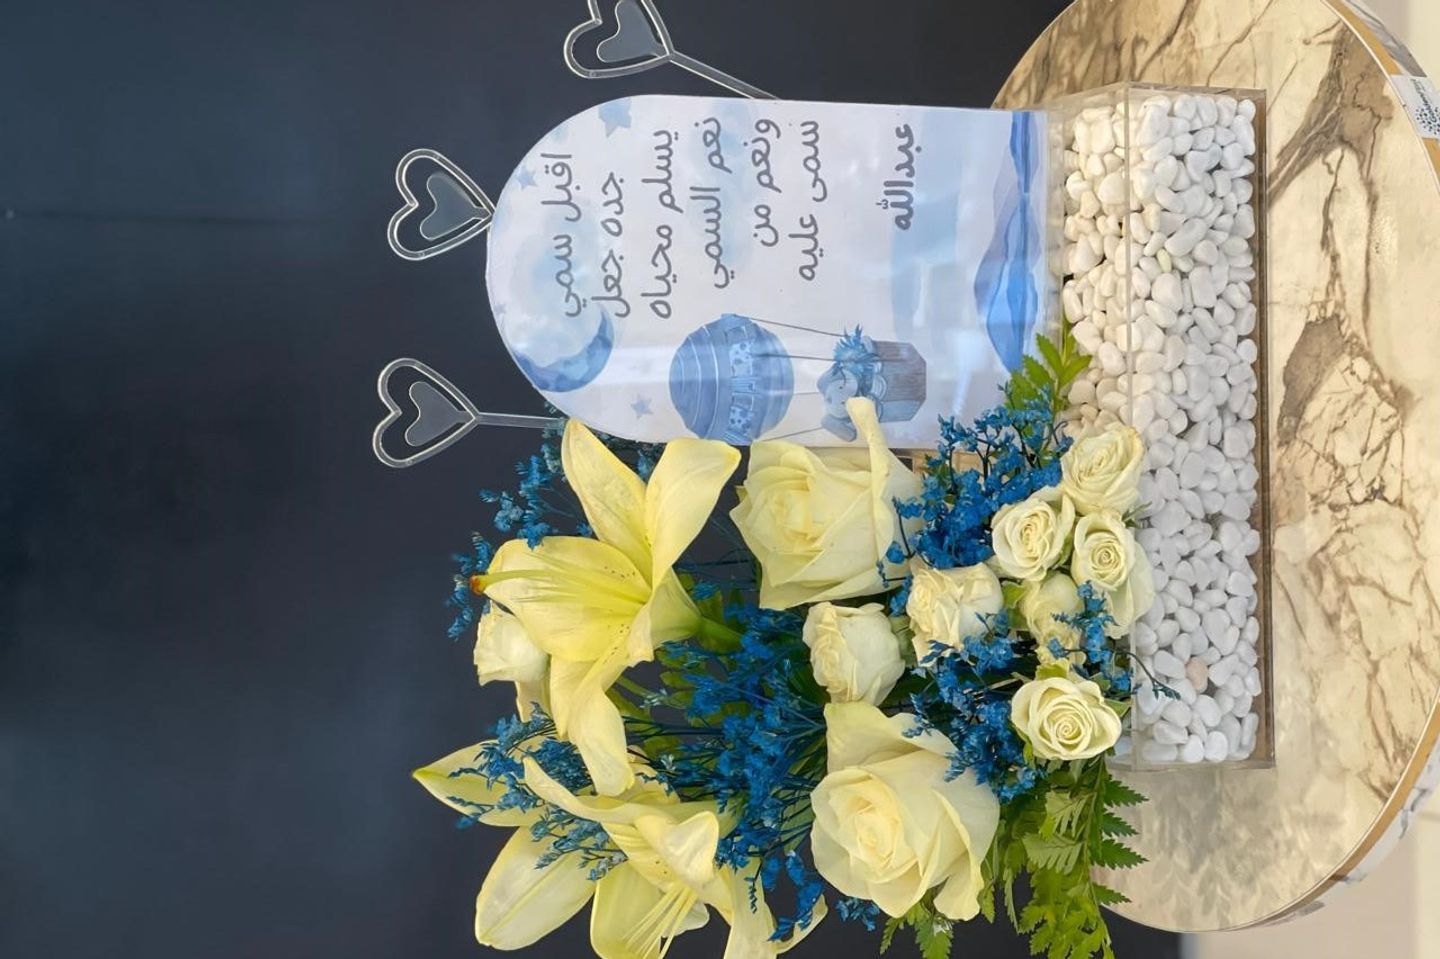 اقبل سمي
جده جعل
يسلم محياه
نعم السمي
ونعم من
سمى عليه
عبدالله